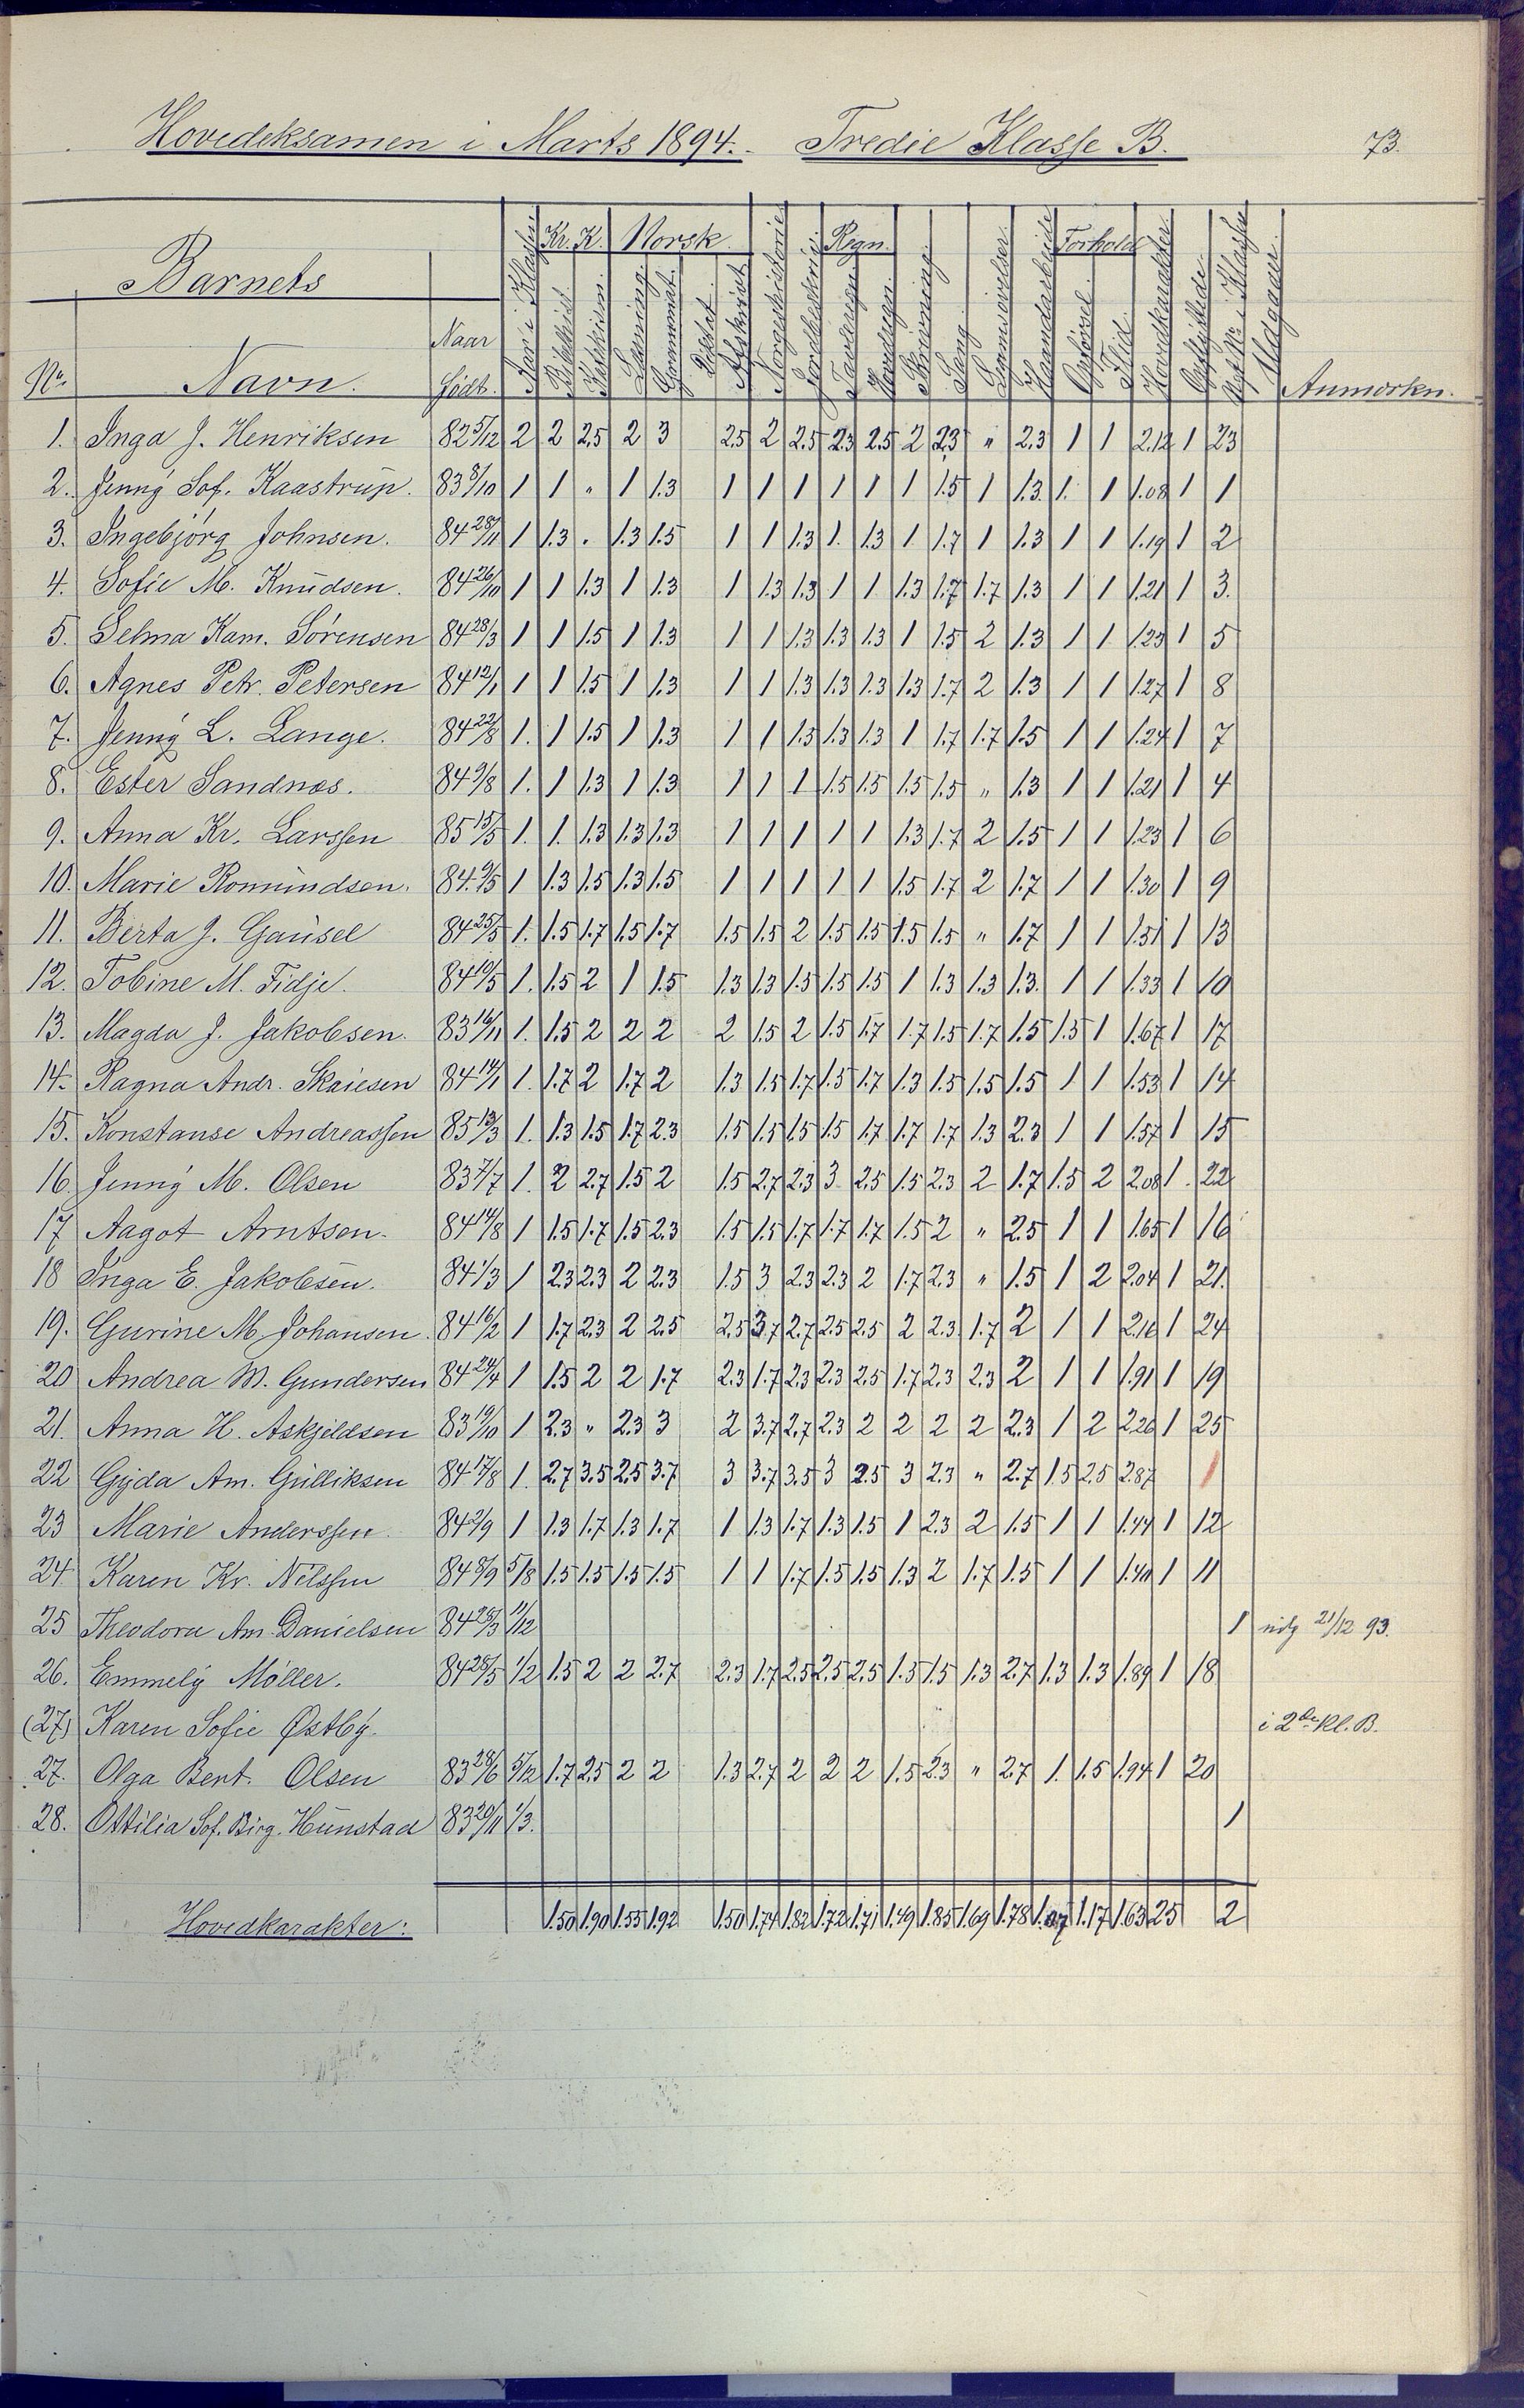 Hovedeksamen i Marts 1894. Tredie Klasse B. 73.
Barnets Kr. K. Norsk. Regn. Forhold
No. Navn. Naar Født. Aar i Klassen Bibelhist. Katekism. Læsning. Grammat. Diktat. Afskrivt. Norgeshistorie Jordbeskriv. Tavleregn. Hovedregn. Skrivning. Sang. Lemsøvelser. Haandarbeide Opførsel. Flid. Hovedkarakter. Opflyttede. Nyt No. i Klassen Udgaaer. Anmærkn.
1. Inga J. Henriksen 82 5/12 2 2 2.5 2 3 2.5 2 2.5 2.3 2.5 2 2.3 " 2.3 1 1 2.12 1 23
2. Jenny Sof. Kaastrup. 83 8/10 1 1 " 1 1.3 1 1 1 1 1 1 1.5 1 1.3 1. 1 1.08 1 1
3. Ingebjørg Johnsen. 84 28/11 1 1.3 . 1.3 1.5 1 1 1.3 1. 1.3 1 1.7 1 1.3 1 1 1.19 1 2
4. Sofie M. Knudsen. 84 26/10 1 1 1.3 1 1.3 1 1.3 1.3 1 1 1.3 1.7 1.7 1.3 1 1 1.21 1 3.
5. Selma Kam. Sørensen 84 28/3 1 1 1.5 1 1.3 1 1 1.3 1.3 1.3 1 1.5 2 1.3 1 1 1.23 1 5
6. Agnes Petr. Petersen 84 12/1 1 1 1.5 1 1.3 1 1 1.3 1.3 1.3 1.3 1.7 2 1.3 1 1 1.27 1 8
7. Jenny L. Lange. 84 22/8 1. 1 1.5 1 1.3 1 1 1.3 1.3 1.3 1 1.7 1.7 1.5 1 1 1.24 1 7
8. Ester Sandnæs. 84 9/8 1. 1 1.3 1 1.3 1 1 1 1.5 1.5 1.5 1.5 " 1.3 1 1 1.21 1 4
9. Anna Kr. Larssen 85 15/5 1. 1. 1.3 1.3 1.3 1 1 1 1 1 1.3 1.7 2 1.5 1 1 1.23 1 6
10. Marie Romundsen. 84. 9/5 1 1.3 1.5 1.3 1.5 1 1 1 1 1 1.5 1.7 2 1.7 1 1 1.30 1 9
11. Berta J. Gausel 84 25/5 1. 1.5 1.7 1.5 1.7 1.5 1.5 2 1.5 1.5 1.5 1.5 " 1.7 1 1 1.51 1 13
12. Tobine M. Fidje. 84 10/5 1. 1.5 2 1 1.5 1.3 1.3 1.5 1.5 1.5 1 1.3 1.3 1.3. 1 1 1.33 1 10
13. Magda J. Jakobsen. 83 16/11 1. 1.5 2 2 2 2 1.5 2 1.5 1.7 1.7 1.5 1.7 1.5 1.5 1 1.67 1 17
14. Ragna Andr. Skaiesen 84 14/1 1. 1.7 2 1.7 2 1.3 1.5 1.7 1.5 1.7 1.3 1.5 1.5 1.5 1 1 1.53 1 14
15. Konstanse Andreassen 85 13/3 1. 1.3 1.5 1.7 2.3 1.5 1.5 1.5 1.5 1.7 1.7 1.7 1.3 2.3 1 1 1.57 1 15
16. Jenny M. Olsen 83 7/7 1. 2 2.7 1.5 2 1.5 2.7 2.3 3 2.5 1.5 2.3 2 1.7 1.5 2 2.08 1. 22
17 Aagot Arntsen. 84 14/8 1 1.5 1.7 1.5 2.3 1.5 1.5 1.7 1.7 1.7 1.5 2 " 2.5 1 1 1.65 1 16
18 Inga E. Jakobsen. 84 1/3 1 2.3 2.3 2 2.3 1.5 3 2.3 2.3 2 1.7 2.3 " 1.5 1 2 2.04 1 21.
19. Gurine M. Johansen. 84 16/2 1 1.7 2.3 2 2.5 2.5 3.7 2.7 2.5 2.5 2 2.3 1.7 2 1 1 2.16 1 24
20 Andrea M. Gundersen 84 24/4 1 1.5 2 2 1.7 2.3 1.7 2.3 2.3 2.5 1.7 2.3 2.3 2 1 1 1.91 1 19
21. Anna H. Askjeldsen 83 19/10 1 2.3 " 2.3 3 2 3.7 2.7 2.3 2 2 2 2 2.3 1 2 2.26 1 25
22 Gyda Am. Gulliksen 84 17/8 1. 2.7 3.5 2.5 3.7 3 3.7 3.5 3 2.5 3 2.3 " 2.7 1.5 2.5 2.87 1
23 Marie Anderssen. 84 2/9 1 1.3 1.7 1.3 1.7 1 1.3 1.7 1.3 1.5 1 2.3 2 1.5 1 1 1.44 1 12
24. Karen Kr. Nilssen 84 8/9 5/8 1.5 1.5 1.5 1.5 1 1 1.7 1.5 1.5 1.3 2 1.7 1.5 1 1 1.40 1 11
25 Theodora Am. Danielsen 84 28/3 11/12 1 udg 21/12 93.
26. Emmely Møller. 84 28/5 1/2 1.5 2 2 2.7 2.3 1.7 2.5 2.5 2.5 1.5 1.5 1.3 2.7 1.3 1.3 1.89 1 18
(27) Karen Sofie Østby. i 2den Kl. B.
27. Olga Bent. Olsen 83 28/6 5/12 1.7 2.5 2 2 1.3 2.7 2 2 2 1.5 2.3 " 2.7 1. 1.5 1.94 1 20
28. Ottilia Sof. Birg. Hunstad 83 20/11 1/3. 1
Hovedkarakter: 1.50 1.90 1.55 1.92 1.50 1.74 1.82 1.72 1.71 1.49 1.85 1.69 1.78 1.07 1.17 1.63 25 2